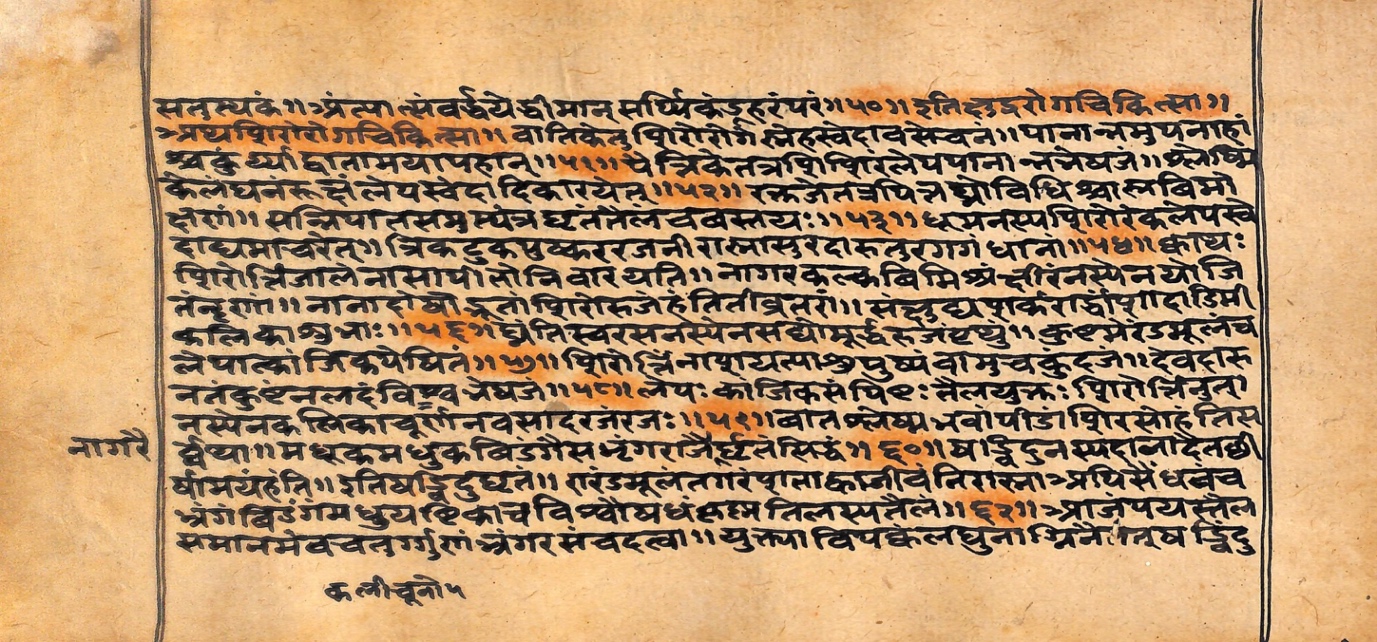 सतुत्थकं॥ भ्रंत्पात्संवर्द्धयेद्धीमान् सर्प्पिकंडूहरंपरं॥५०॥ इतिक्षुद्ररोगचिकित्सा॥
अथशिरोरोगचिकित्सा॥ वातिकेतुशिरोरोगेस्नेहस्वेदावसेचनं॥ पानान्नमुपनाहां
श्चकुर्य्याद्वातामयापहान्॥५१॥ पैत्तिकेतत्रशिशिरंलेपपानान्नभेषजं॥ श्लेष्मि
केलघनंरुक्षंलेपस्वेदादिकारयेत्॥५२॥ रक्तजेतत्रपित्तघ्नोविधिश्चास्रविमो
क्षणं॥ सन्निपातसमुत्पंन्नघृतंतैलंचवस्तयः॥५३॥ धूमनस्यशिरोरेकलेपस्वे
दाद्यमाचरेत्॥ त्रिकटुकपुष्कररजनीरास्नासुरदारुतुरगगंधानां॥५४॥ क्वाथः
शिरोर्त्तिजालंनासापीतोनिवारयति॥ नागरकल्कविमिश्रंक्षीरंनस्येनयोजि
तंनृणां॥ नानादोषोद्भूतांशिरोरुजंहंतितीव्रतरां॥
कलिकाशुभाः॥५६॥ घ्रतिस्वरसनस्येनसद्योमूर्द्धरुजंपृथुं॥ कुष्टमेरंडमूलंच
लेपात्कांजिकपेषितं॥५७॥ शिरोर्त्तिंनाशयत्याशुपुष्पंवामुचकुंदजं॥ देवदारु
नतंकुष्टंनलदंविश्वभेषजं॥५८॥ लेपः कांजिकसंपिष्टः तैलयुक्तः शिरोर्त्तिनुत॥
वातश्लेष्मभवांपीडांशिरसोहंतिस
नागरै
र्व्वथा॥ मधुकविडंगैसभृंगराजैर्घृतंसिद्धं॥६०॥ षड्बिंदुनस्यदानादेतच्छी
र्षामयंहंति॥ इतिषड्बिंदुघृतं॥ एरंडमूलंतगरंशताह्वाजीवंतिरास्नाअपिसैंधवंच
भृंगंविडंगंमधुयष्टिकाचविश्वौषधंकृष्णतिलस्यतैलं॥६२॥ आजंपयस्तैल
समानमेवचतुर्ग्गुणंभृंगरसंचदत्वा॥ युक्त्याविपक्वंलघुनाग्निनैतत्षड्बिंदु
कलीचूनो५